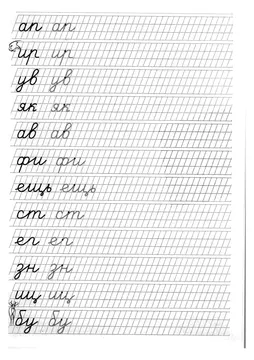 ап ап
ир ир
ув ув
як як
ав ав
фи фи
ещь ещь
ст ст
ег ег
зн зн
щ щ
бу бу